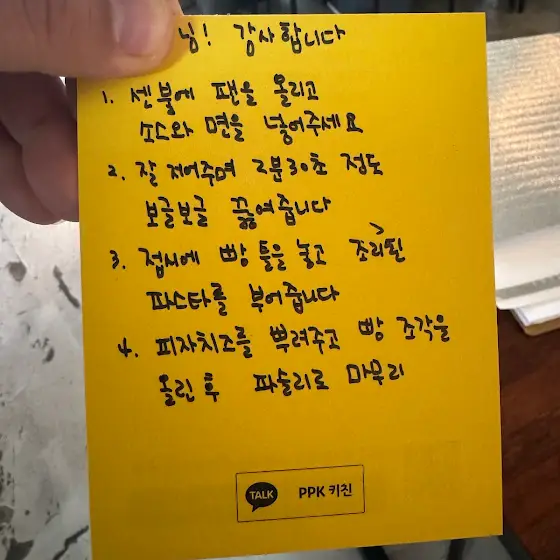 님! 감사합니다
1. 센불에 팬을 올리고
소스와 면을 넣어주세요
2. 잘 저어주며 2분30초 정도
보글보글 끓여줍니다
3. 접시에 빵 틀을 놓고 조리된
파스타를 부어줍니다
4. 피자치즈를 뿌려주고 빵 조각을
올린 후 파슬리로 마무리
TALK PPK 키친